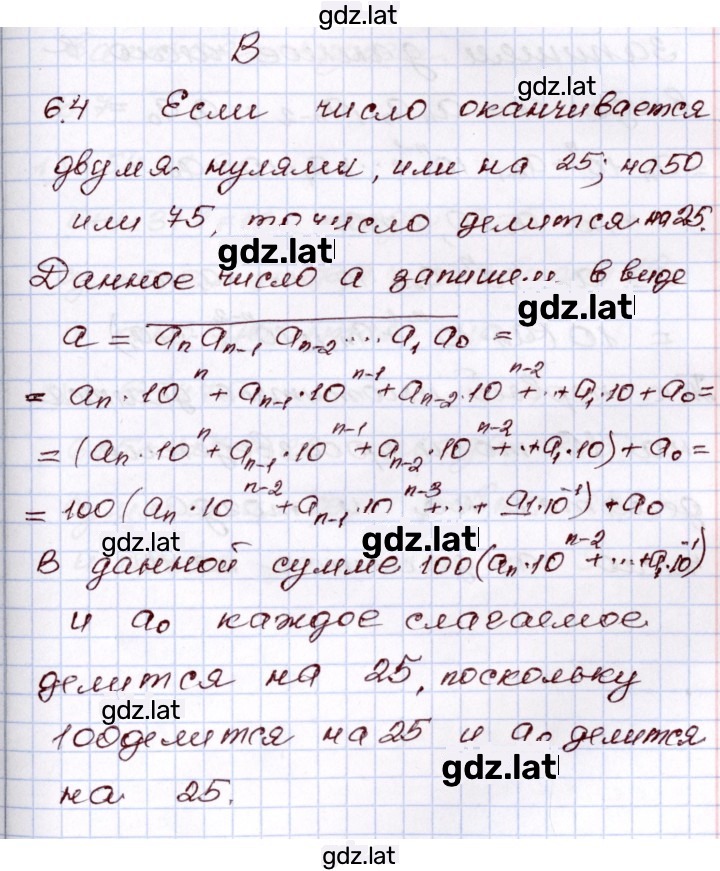 gdz.lat
В
gdz.lat
6.4 Если число оканчивается
двумя нулями, или на 25; на 50
или 75, то число делится на 25.
gdz.lat
Данное число a запишем в виде
gdz.lat
a = aₙ aₙ₋₁ aₙ₋₂ ... a₁ a₀ =
= aₙ·10ⁿ + aₙ₋₁·10ⁿ⁻¹ + aₙ₋₂·10ⁿ⁻² + ... + a₁·10 + a₀ =
= (aₙ·10ⁿ + aₙ₋₁·10ⁿ⁻¹ + aₙ₋₂·10ⁿ⁻² + ... + a₁·10) + a₀ =
= 100(aₙ·10ⁿ⁻² + aₙ₋₁·10ⁿ⁻³ + ... + a₁·10⁻¹) + a₀
gdz.lat gdz.lat gdz.lat
В данной сумме 100(aₙ·10ⁿ⁻² + ... + a₁·10⁻¹)
и a₀ каждое слагаемое
делится на 25, поскольку
gdz.lat
100 делится на 25 и a₀ делится
gdz.lat
на 25.
gdz.lat